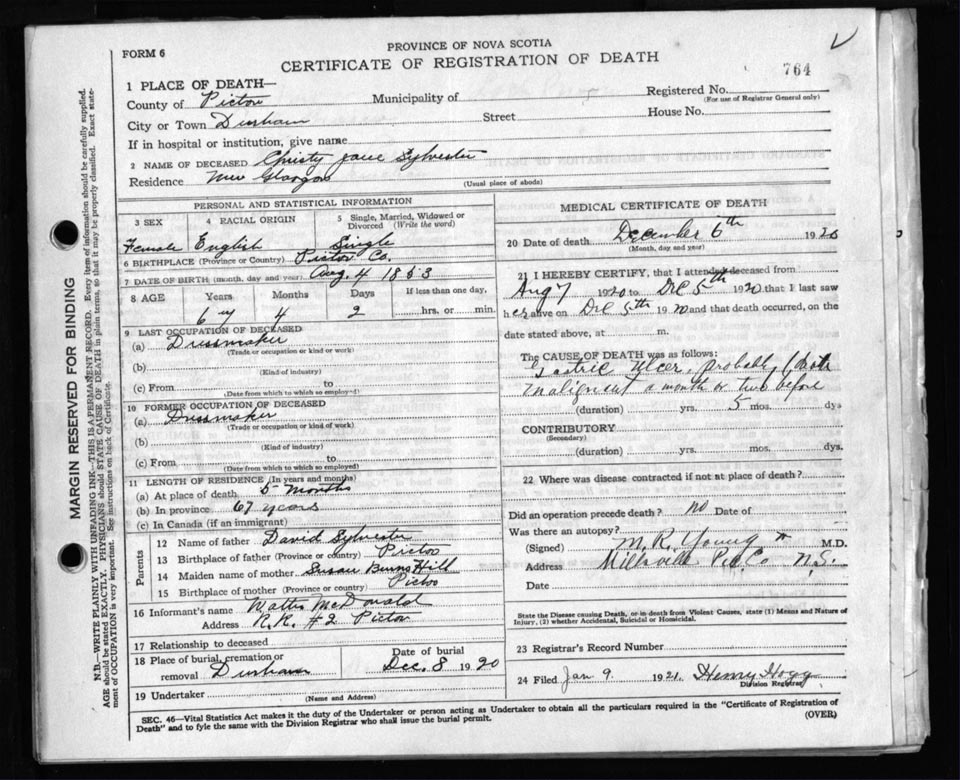 PROVINCE OF NOVA SCOTIA
FORM 6
CERTIFICATE OF REGISTRATION OF DEATH
764
1 PLACE OF DEATH—
County of Pictou Municipality of Registered No.
(For use of Registrar General only)
City or Town Durham Street House No.
If in hospital or institution, give name
2 NAME OF DECEASED Christy Jane Sylvester
Residence New Glasgow (Usual place of abode)
PERSONAL AND STATISTICAL INFORMATION
3 SEX 4 RACIAL ORIGIN 5 Single, Married, Widowed or Divorced (Write the word)
Female English Single
6 BIRTHPLACE (Province or Country) Pictou Co.
7 DATE OF BIRTH (month, day and year) Aug. 4 1853
8 AGE Years Months Days If less than one day,
67 4 2 hrs. or min.
9 LAST OCCUPATION OF DECEASED
(a) Dressmaker
(Trade or occupation or kind of work)
(b)
(Kind of industry)
(c) From to
(Date from which to which so employed)
10 FORMER OCCUPATION OF DECEASED
(a) Dressmaker
(Trade or occupation or kind of work)
(b)
(Kind of industry)
(c) From to
(Date from which to which so employed)
11 LENGTH OF RESIDENCE (In years and months)
(a) At place of death 5 months
(b) In province 67 years
(c) In Canada (if an immigrant)
Parents
12 Name of father David Sylvester
13 Birthplace of father (Province or country) Pictou
14 Maiden name of mother Susan Burns Hill
15 Birthplace of mother (Province or country) Pictou
16 Informant's name McDonald
Address R.R. #2 Pictou
17 Relationship to deceased
18 Place of burial, cremation or removal Durham Date of burial Dec. 8 1920
19 Undertaker
(Name and Address)
MEDICAL CERTIFICATE OF DEATH
20 Date of death December 6th 1920
(Month, day and year)
21 I HEREBY CERTIFY, that I attended deceased from
Aug 7 1920 to Dec 5th 1920 that I last saw
her alive on Dec 5th 1920 and that death occurred, on the
date stated above, at m.
The CAUSE OF DEATH was as follows:
Gastric Ulcer, probably
malignent a month or two before
(duration) yrs. 5 mos. dys
CONTRIBUTORY
(Secondary)
(duration) yrs. mos. dys.
22 Where was disease contracted if not at place of death?
Did an operation precede death? no Date of
Was there an autopsy?
(Signed) M. R. Young M.D.
Address Millsville Pict. Co N.S.
Date
State the Disease causing Death, or in death from Violent Causes, state (1) Means and Nature of
Injury, (2) whether Accidental, Suicidal or Homicidal.
23 Registrar's Record Number
24 Filed Jan 9 1921. Henry Hogg
Division Registrar
SEC. 46—Vital Statistics Act makes it the duty of the Undertaker or person acting as Undertaker to obtain all the particulars required in the "Certificate of Registration of
Death" and to fyle the same with the Division Registrar who shall issue the burial permit.
(OVER)
MARGIN RESERVED FOR BINDING
N.B.—WRITE PLAINLY WITH UNFADING INK—THIS IS A PERMANENT RECORD. Every item of information should be carefully supplied.
AGE should be stated EXACTLY. PHYSICIANS should STATE CAUSE OF DEATH in plain terms, so that it may be properly classified. Exact state-
ment of OCCUPATION is very important. See instructions on back of Certificate.